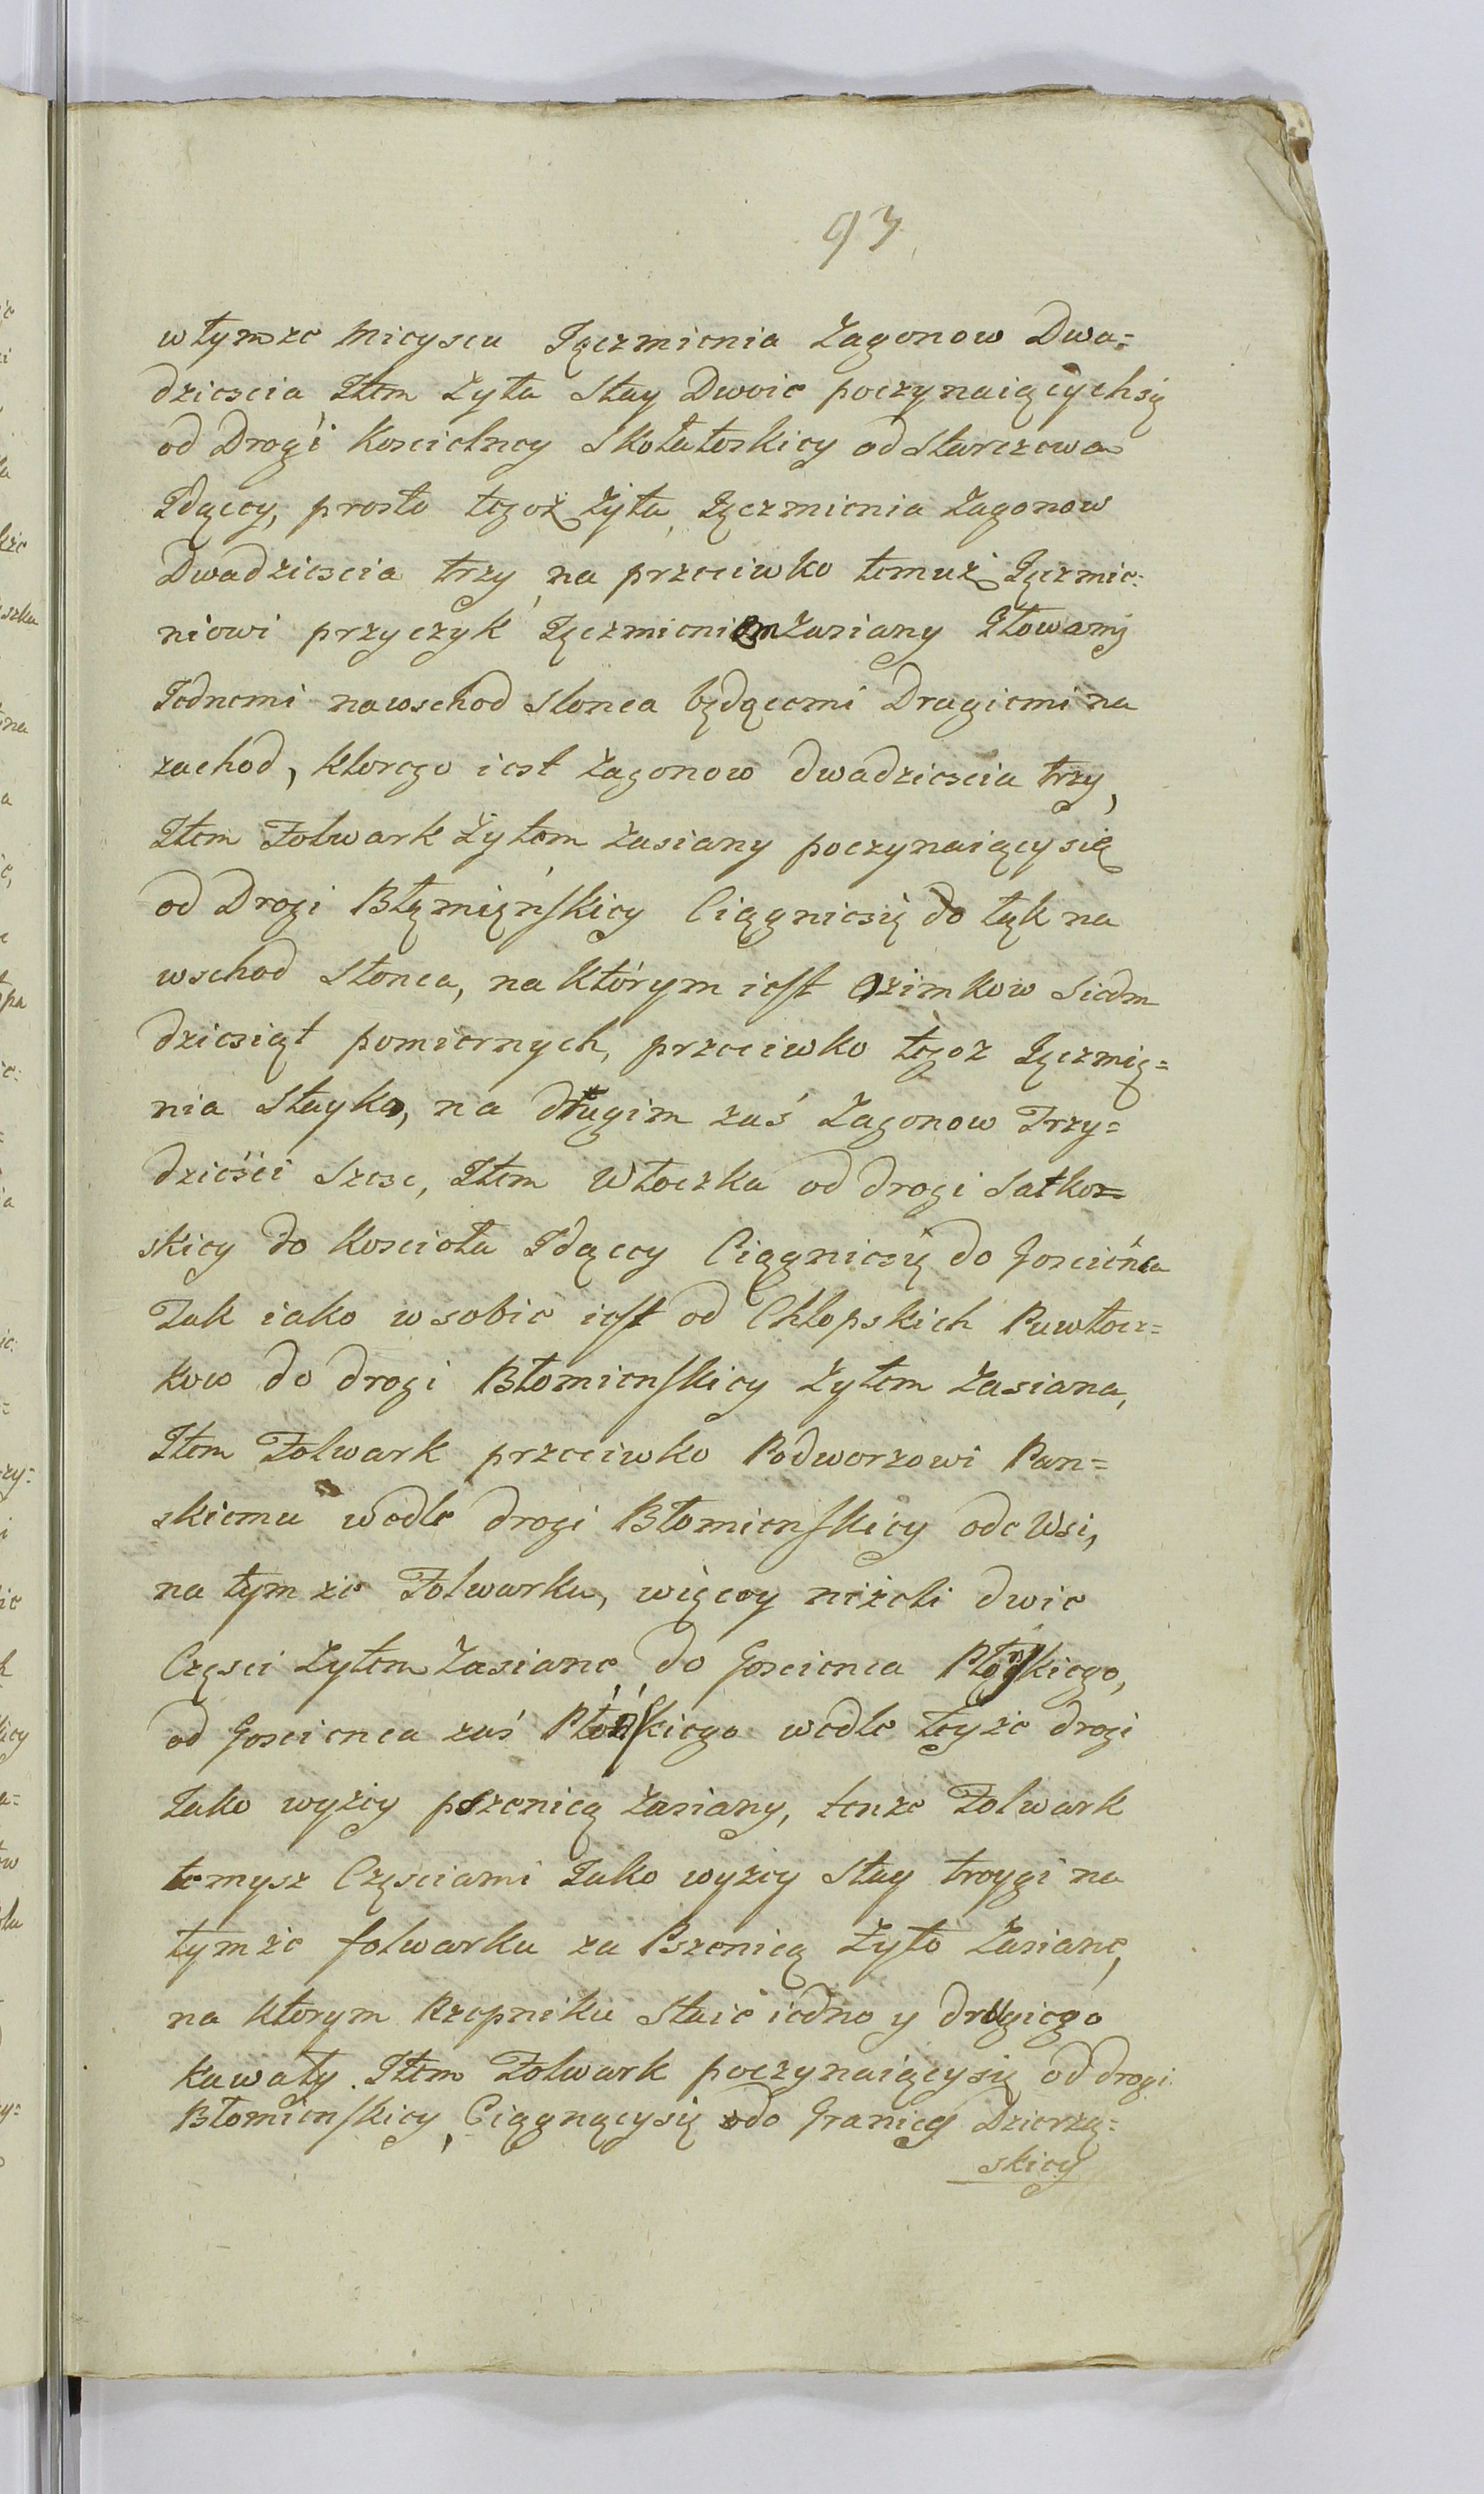 93
w tymze Mieyscu Jęczmienia Zagonow Dwa=
dziescia Item Zyta Stay Dwoie poczynaiącychsię
od Drogi Koscielney Skołatoskiey od Starczewa
Idącey, prosto tegoż Zyta, Jęczmienia Zagonow
Dwadziescia trzy, na przeciwko temuż Jęczmie=
niowi przyczyk Jęczmieniem Zasiany Głowami
Jednemi nawschod Slonca będącemi Drugiemi na
zachod, ktorego iest Zagonow dwadziescia trzy,
Item Folwark Żytem Zasiany poczynaiącysię
od Drogi Błęmięńskiey Ciągniesię do łąk na
wschod Słonca, na którym iest Ozimkow Siedm
dziesiąt pomiernych, przeciwko tegoz Jęczmię=
nia Stayko, na długim zaś Zagonow Trzy=
dzieści Szesc, Item Włoczka od drogi Satkow=
skiey do Koscioła Idącey Ciągniesię do Goscińca
Tak iako wsobie iest od Chłopskich Puwłocz=
kow do drogi Błomienskiey Zytem Zasiana,
Item Folwark przeciwko Podworzowi Pan=
skiemu wedle drogi Błomienskiey ode Wsi,
na tym że Folwarku, więcey niżeli dwie
Częsci Zytem Zasiane, do Goscienca Płońskiego,
od Goscienca zaś Płońskiego wedle teyże drogi
Jako wyżey pszenicą Zasiany, tenże Folwark
temysz Częsciami Jako wyżey Stay troygi na
tymże folwarku za Pszenicą Zyto Zasiane,
na ktorym Rzepniku Staie iedno y drugiego
kawały. Item Folwark poczynaiącysię od drogi
Błomienskiey, Ciągnącysię do Granicy Dzierzą=
skiey